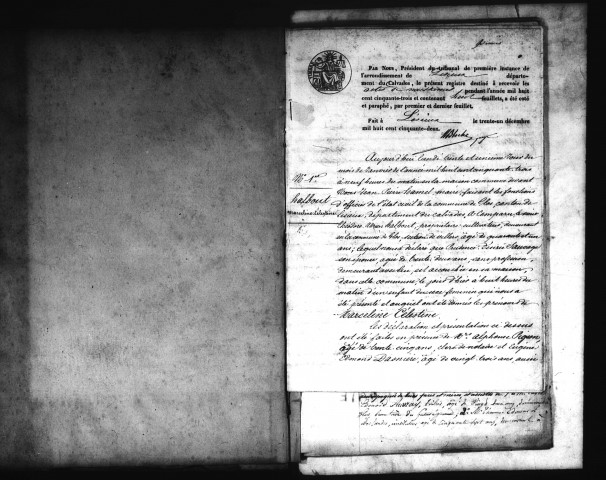 Par Nous, Président du tribunal de première instance de
l'arrondissement de Lisieux départe-
ment du Calvados, le présent registre destiné à recevoir les
actes de pendant l'année mil huit
cent cinquante-trois et contenant huit feuillets, a été coté
et paraphé, par premier et dernier feuillet.
Fait à Lisieux le trente-un décembre
mil huit cent cinquante-deux.
Aujourd'hui lundi trente et unième jour du
mois de Janvier de l'année mil huit cent cinquante trois
à neuf heures du matin en la maison commune devant
Nous Jean Pierre Hamel, maire, faisant les fonctions
d'officier de l'état civil de la commune de Glos, canton de
Lisieux, département du calvados, est comparu Louis
Halbout, propriétaire cultivateur, demeurant
en la commune de Glos, section de Villers, âgé de quarante et un
ans; lequel nous a déclaré que Prudence Désirée Sauvage
son épouse, âgée de trente deux ans, sans profession,
demeurant avec lui, est accouchée en sa maison,
dans cette commune, le jour d'hier à huit heures du
matin d'un enfant du sexe féminin qui nous a
été présenté et auquel ont été donnés les prénoms de
Marceline Célestine.
Les déclaration et présentation ci dessus
ont été faites en présence de Mr. Alphonse Pigeon
âgé de trente cinq ans, clerc de notaire et Eugène
Edmond Dasnière, âgé de vingt trois ans, aussi
No. 1er.
Halbout
Marceline Célestine